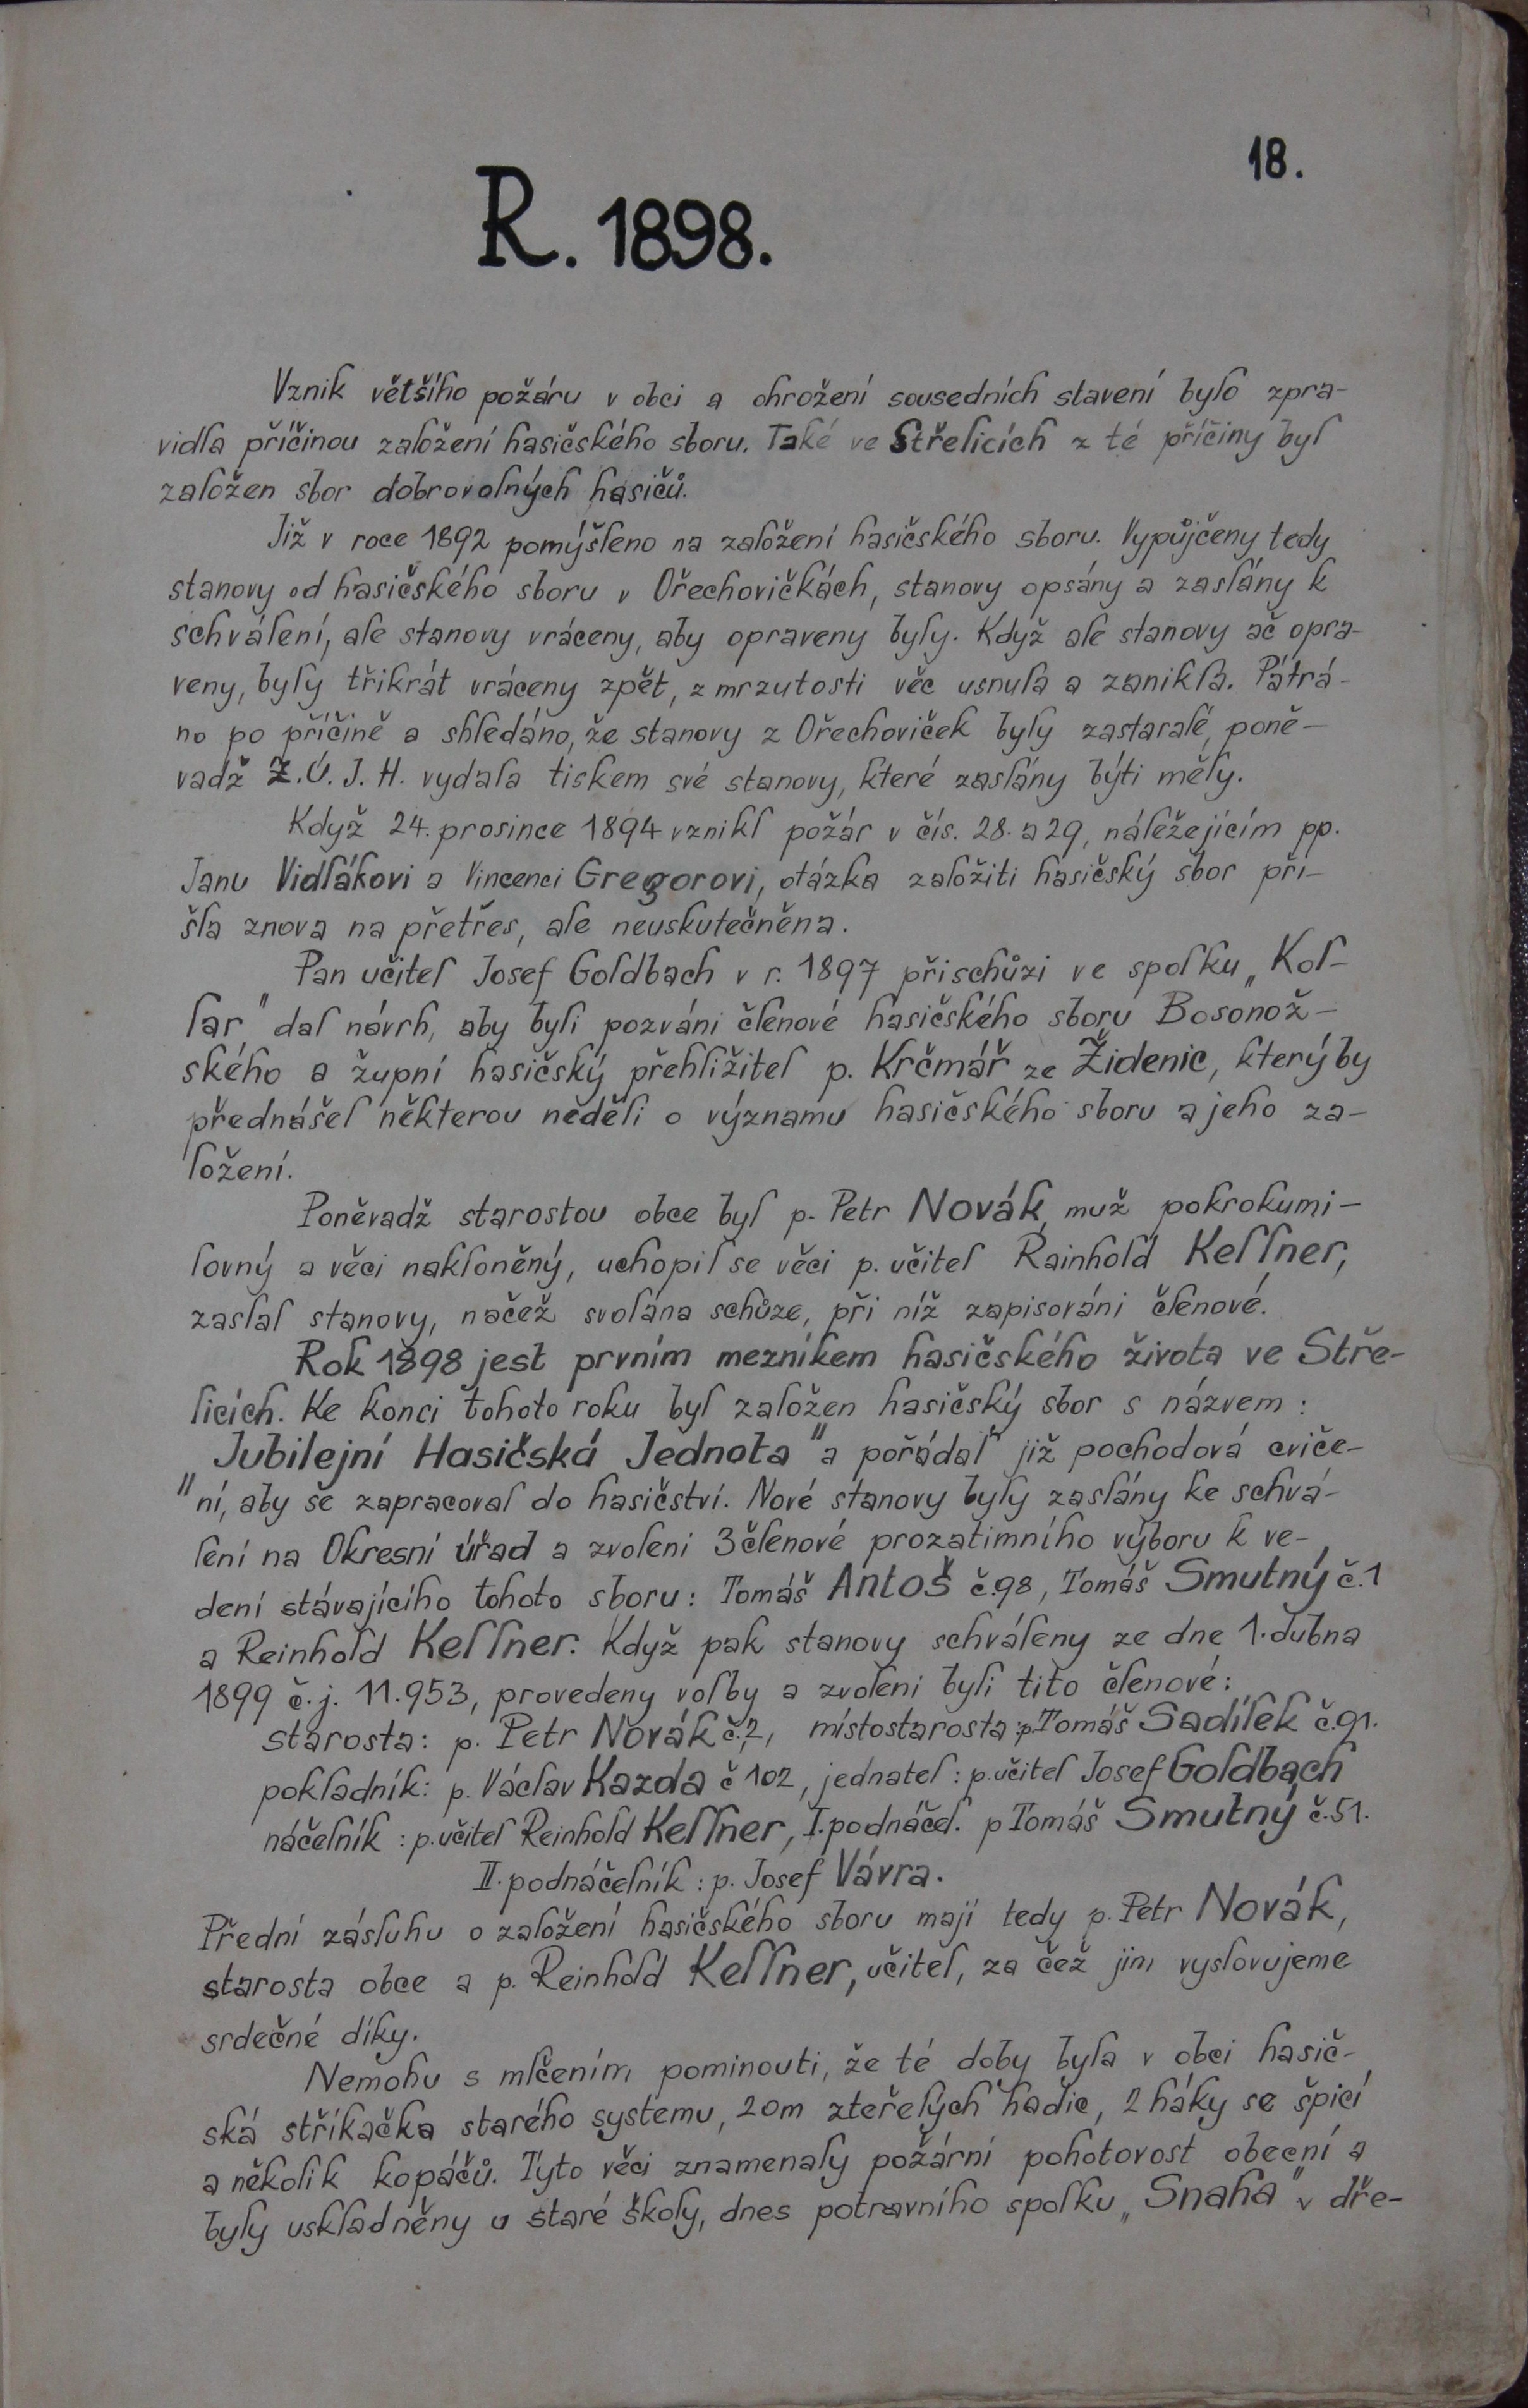 18.
R. 1898.
Vznik většího požáru v obci a ohrožení sousedních stavení bylo zpra-
vidla příčinou založení hasičského sboru. Také ve Střelicích z té příčiny byl
založen sbor dobrovolných hasičů.
Již v roce 1892 pomýšleno na založení hasičského sboru. Vypůjčeny tedy
stanovy od hasičského sboru v Ořechovičkách, stanovy opsány a zaslány k
schválení, ale stanovy vráceny, aby opraveny byly. Když ale stanovy ač opra-
veny, byly třikrát vráceny zpět, z mrzutosti věc usnula a zanikla. Pátrá-
no po příčině a shledáno, že stanovy z Ořechoviček byly zastaralé, poně-
vadž Z.Ú.J.H. vydala tiskem své stanovy, které zaslány býti měly.
Když 24. prosince 1894 vznikl požár v čís. 28. a 29, náležejícím pp.
Janu Vidlákovi a Vincenci Gregorovi, otázka založiti hasičský sbor při-
šla znova na přetřes, ale neuskutečněna.
Pan učitel Josef Goldbach v r. 1897 při schůzi ve spolku „Kol-
lar" dal návrh, aby byli pozváni členové hasičského sboru Bosonož-
ského a župní hasičský přehližitel p. Krčmář ze Židenic, který by
přednášel některou neděli o významu hasičského sboru a jeho za-
ložení.
Poněvadž starostou obce byl p. Petr Novák, muž pokrokumi-
lovný a věci nakloněný, uchopil se věci p. učitel Rainhold Kellner,
zaslal stanovy, načež svolána schůze, při níž zapisováni členové.
Rok 1898 jest prvním mezníkem hasičského života ve Stře-
licích. Ke konci tohoto roku byl založen hasičský sbor s názvem:
„Jubilejní Hasičská Jednota" a pořádal již pochodová cviče-
ní, aby se zapracoval do hasičství. Nové stanovy byly zaslány ke schvá-
lení na Okresní úřad a zvoleni 3 členové prozatimního výboru k ve-
dení stávajícího tohoto sboru: Tomáš Antoš č.98, Tomáš Smutný č.1
a Reinhold Kellner. Když pak stanovy schváleny ze dne 1. dubna
1899 č.j. 11.953, provedeny volby a zvoleni byli tito členové:
starosta: p. Petr Novák č.2, místostarosta: p. Tomáš Sadílek č.91.
pokladník: p. Václav Kazda č 102, jednatel: p. učitel Josef Goldbach
náčelník: p. učitel Reinhold Kellner, I. podnáčel. p Tomáš Smutný č.51.
II. podnáčelník: p. Josef Vávra.
Přední zásluhu o založení hasičského sboru mají tedy p. Petr Novák,
starosta obce a p. Reinhold Kellner, učitel, za čež jim vyslovujeme
srdečné díky.
Nemohu s mlčením pominouti, že té doby byla v obci hasič-
ská stříkačka starého systemu, 20m zteřelých hadic, 2 háky se špicí
a několik kopáčů. Tyto věci znamenaly požární pohotovost obecní a
byly uskladněny u staré školy, dnes potravního spolku „Snaha" v dře-